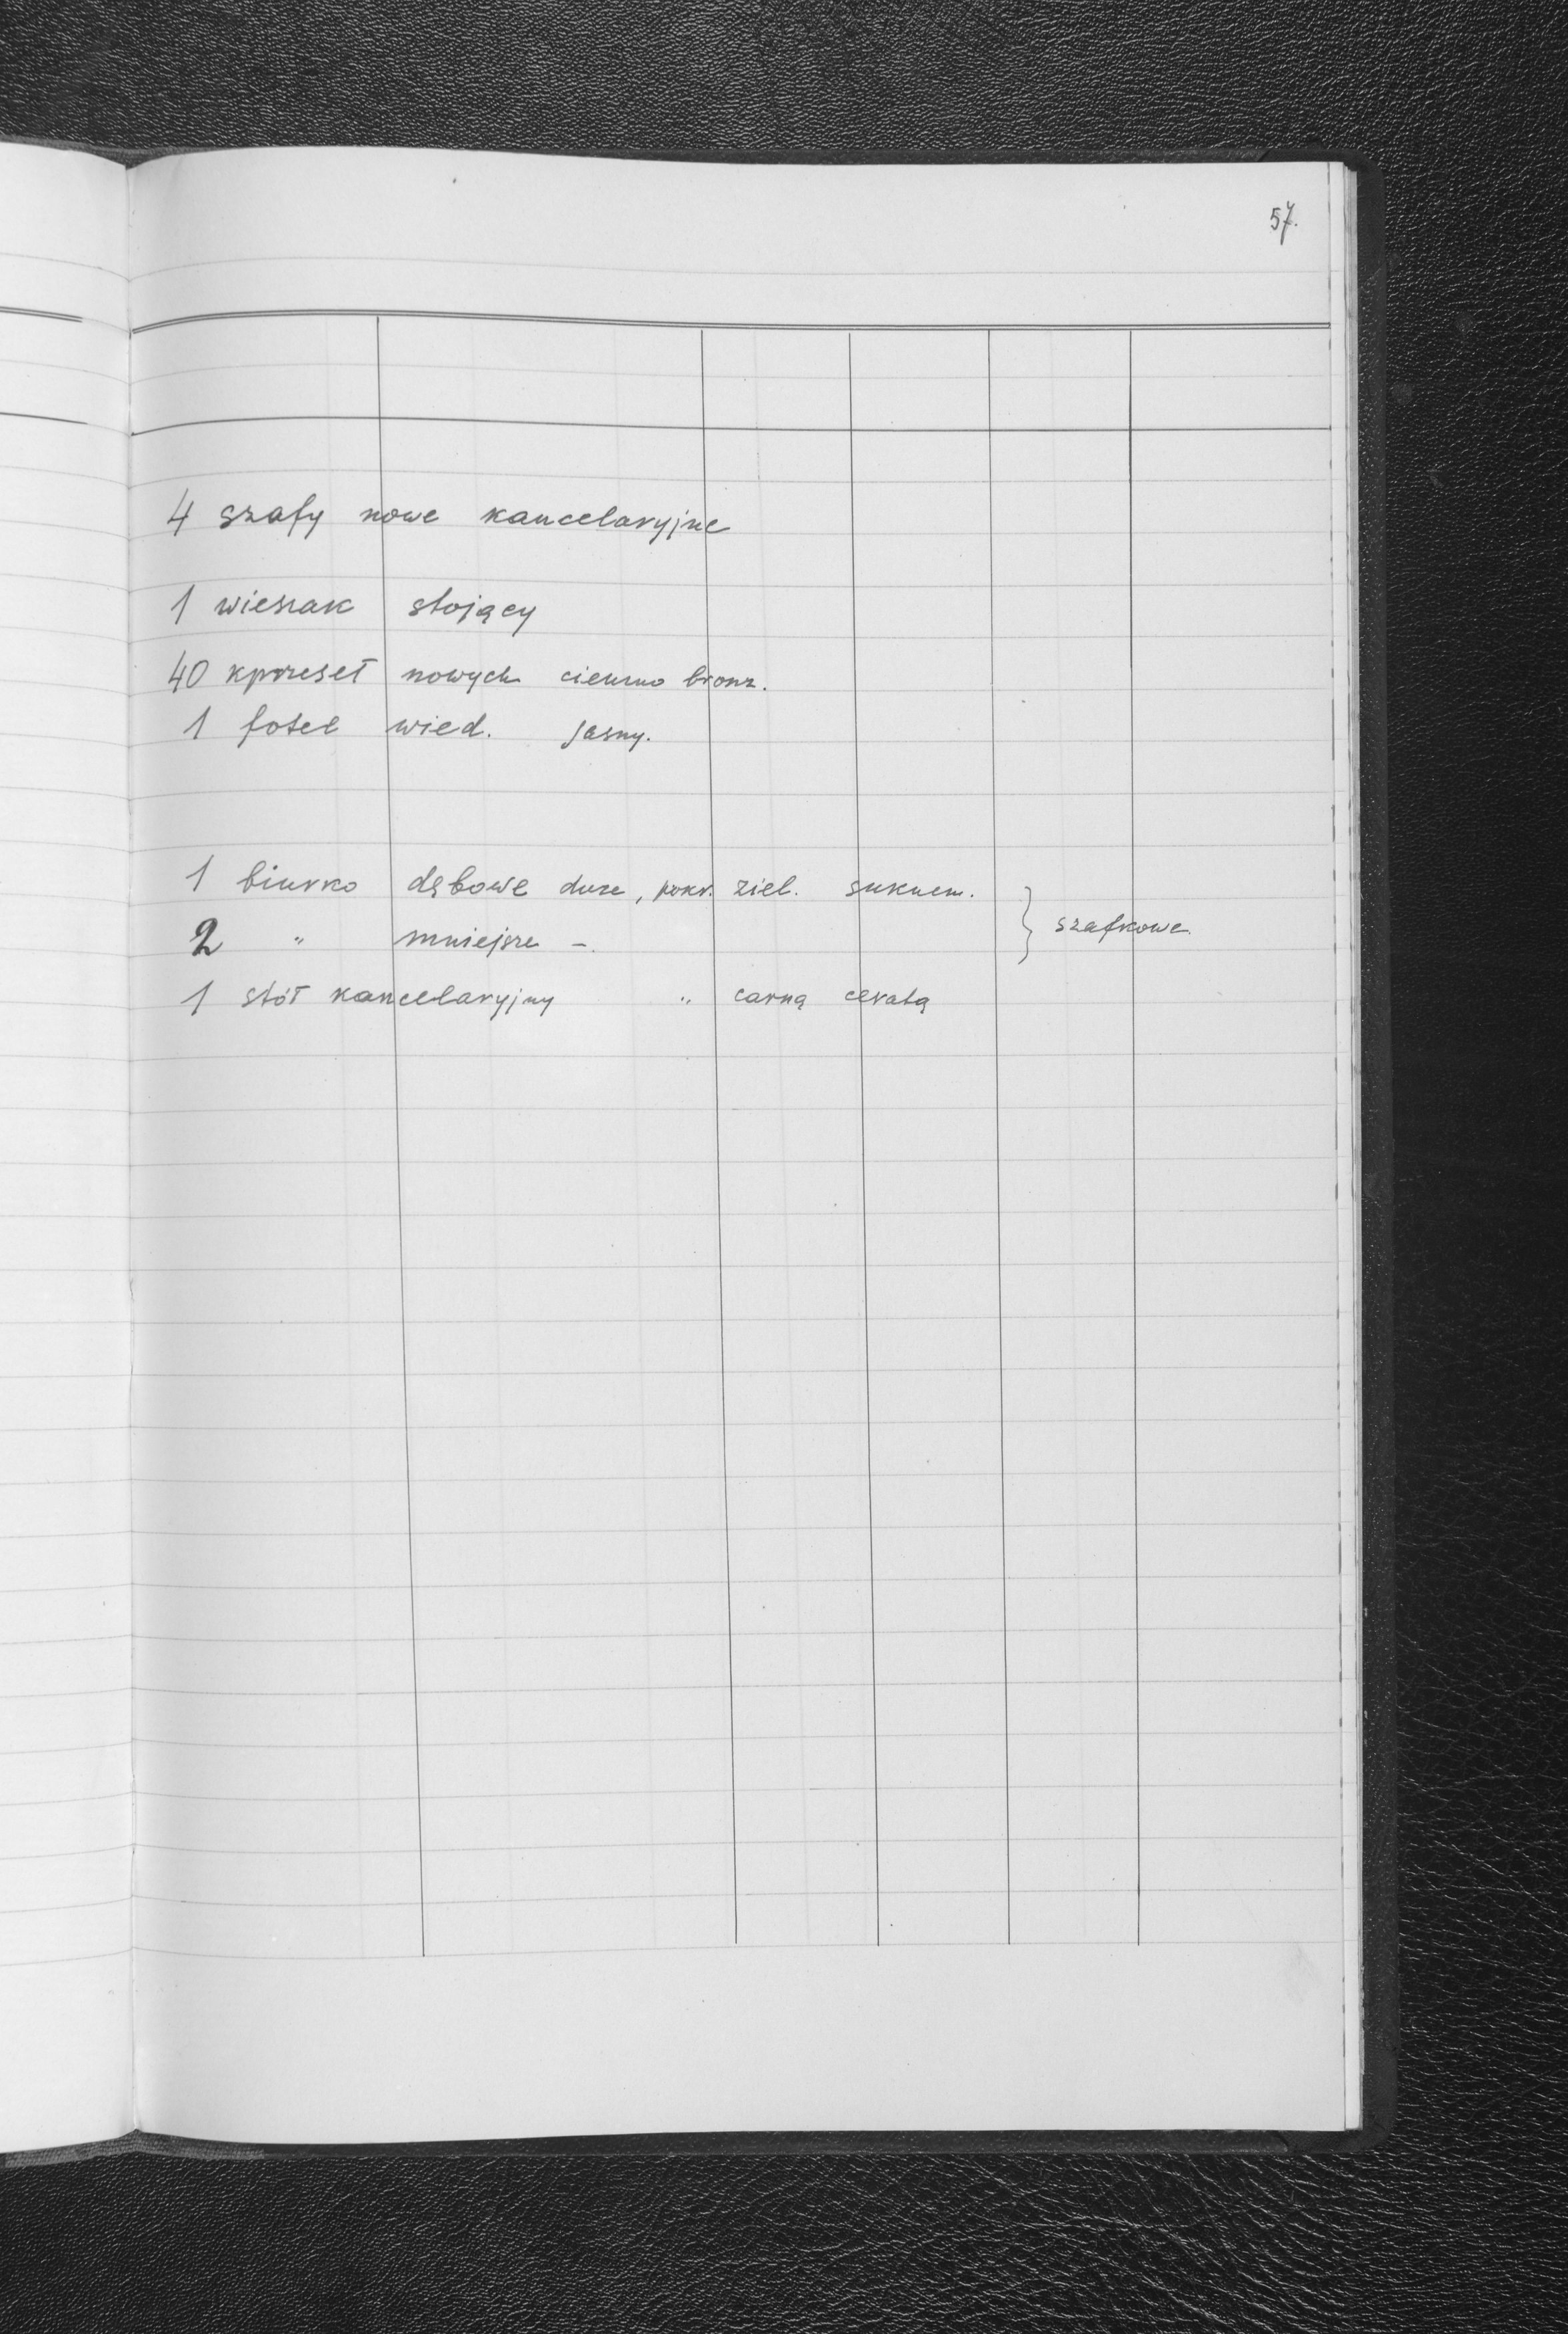 57.
4 szafy nowe kancelaryjne
1 wieszak stojący
40 krzeseł nowych ciemno bronz.
1 fotel wied. jasny.
1 biurko dębowe duze, pokr. ziel. suknem.
2 " mniejsze - } szafkowe
1 stół kancelaryjny " carną ceratą